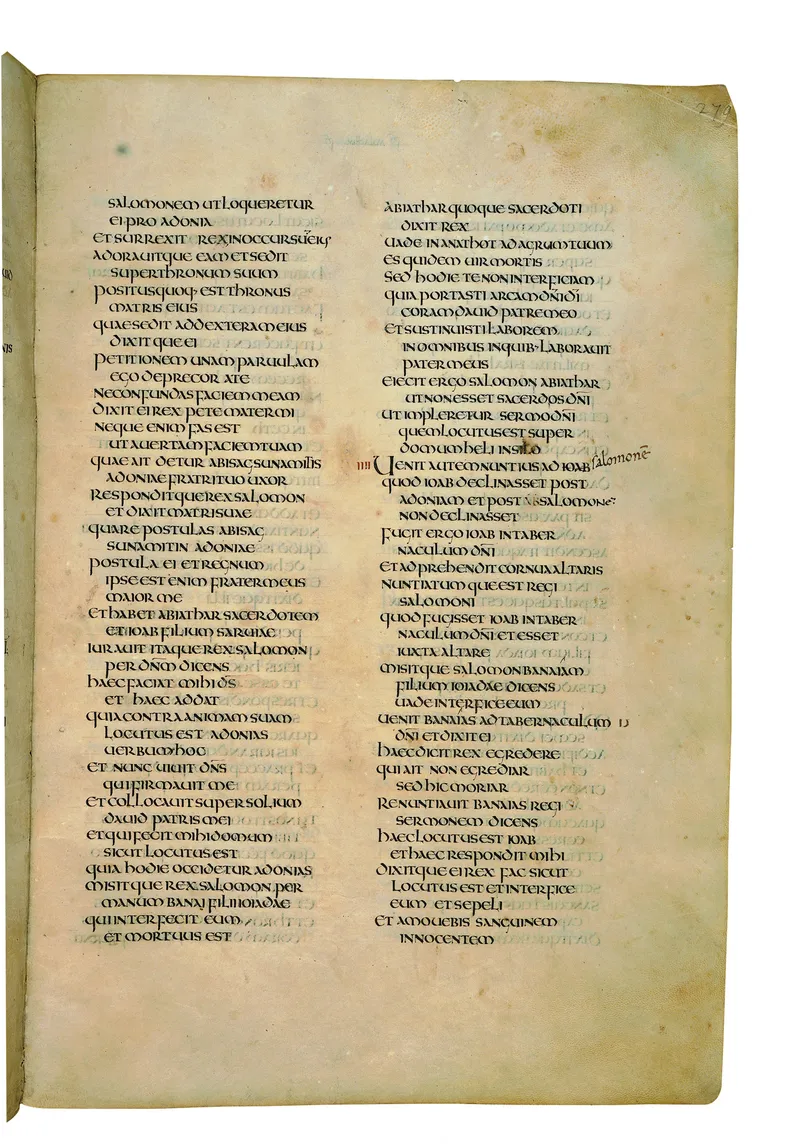 279
SALOMONEM UT LOQUERETUR
EI PRO ADONIA
ET SURREXIT REX IN OCCURSU EIUS
ADORAUITQUE EAM ET SEDIT
SUPER THRONUM SUUM
POSITUSQUOQ· EST THRONUS
MATRIS EIUS
QUAE SEDIT AD DEXTERAM EIUS
DIXITQUE EI
PETITIONEM UNAM PARUULAM
EGO DEPRECOR A TE
NE CONFUNDAS FACIEM MEAM
DIXIT EI REX PETE MATER MI
NEQUE ENIM FAS EST
UT AUERTAM FACIEM TUAM
QUAE AIT DETUR ABISAG SUNAMITIS
ADONIAE FRATRI TUO UXOR
RESPONDITQUE REX SALOMON
ET DIXIT MATRI SUAE
QUARE POSTULAS ABISAG
SUNAMITIN ADONIAE
POSTULA EI ET REGNUM
IPSE EST ENIM FRATER MEUS
MAIOR ME
ET HABET ABIATHAR SACERDOTEM
ET IOAB FILIUM SARUIAE
IURAUIT ITAQUE REX SALOMON
PER DN̄M DICENS
HAEC FACIAT MIHI D̄S
ET HAEC ADDAT
QUIA CONTRA ANIMAM SUAM
LOCUTUS EST ADONIAS
UERBUM HOC
ET NUNC UIUIT DN̄S
QUI FIRMAUIT ME
ET COLLOCAUIT SUPER SOLIUM
DAUID PATRIS MEI
ET QUI FECIT MIHI DOMUM
SICUT LOCUTUS EST
QUIA HODIE OCCIDETUR ADONIAS
MISITQUE REX SALOMON PER
MANUM BANAI FILII IOIADAE
QUI INTERFECIT EUM
ET MORTUUS EST
ABIATHAR QUOQUE SACERDOTI
DIXIT REX
UADE IN ANATHOT AD AGRUM TUUM
ES QUIDEM UIR MORTIS
SED HODIE TE NON INTERFICIAM
QUIA PORTASTI ARCAM DN̄I DĪ
CORAM DAUID PATRE MEO
ET SUSTINUISTI LABOREM
IN OMNIBUS IN QUIB· LABORAUIT
PATER MEUS
EIECIT ERGO SALOMON ABIATHAR
UT NON ESSET SACERDOS DN̄I
UT IMPLERETUR SERMO DN̄I
QUEM LOCUTUS EST SUPER
DOMUM HELI IN SILO
IIII UENIT AUTEM NUNTIUS AD IOAB salomonē
QUOD IOAB DECLINASSET POST
ADONIAM ET POST SALOMONE
NON DECLINASSET
FUGIT ERGO IOAB IN TABER
NACULUM DN̄I
ET ADPREHENDIT CORNUA ALTARIS
NUNTIATUMQUE EST REGI
SALOMONI
QUOD FUGISSET IOAB IN TABER
NACULUM DN̄I ET ESSET
IUXTA ALTARE
MISITQUE SALOMON BANAIAM
FILIUM IOIADAE DICENS
UADE INTERFICE EUM
UENIT BANAIAS AD TABERNACULUM
DN̄I ET DIXIT EI
HAEC DICIT REX EGREDERE
QUI AIT NON EGREDIAR
SED HIC MORIAR
RENUNTIAUIT BANAIAS REGI
SERMONEM DICENS
HAEC LOCUTUS EST IOAB
ET HAEC RESPONDIT MIHI
DIXITQUE EI REX FAC SICUT
LOCUTUS EST ET INTERFICE
EUM ET SEPELI
ET AMOUEBIS SANGUINEM
INNOCENTEM